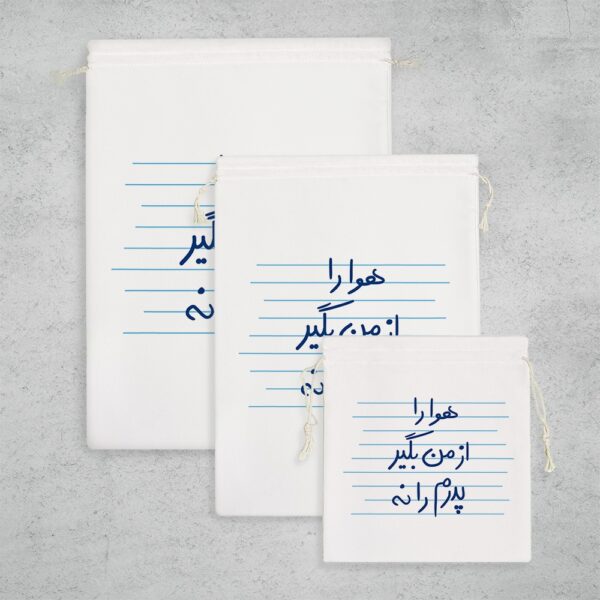 گیر
نه
هوا را
از من بگیر
نه
هوا را
از من بگیر
پدرم را نه